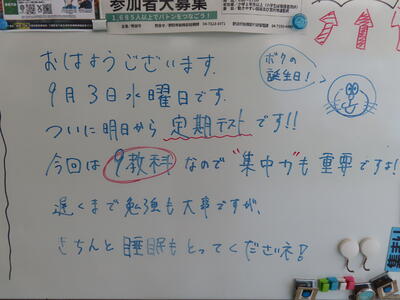 参加者大募集
1,685人以上でバトンをつなごう!
おはようございます.
9月3日水曜日です.
ついに明日から定期テストです!!
今回は9教科なので"集中力"も重要ですよ!
遅くまで勉強も大事ですが、
きちんと睡眠もとってくださネ!
ボクの
誕生日!